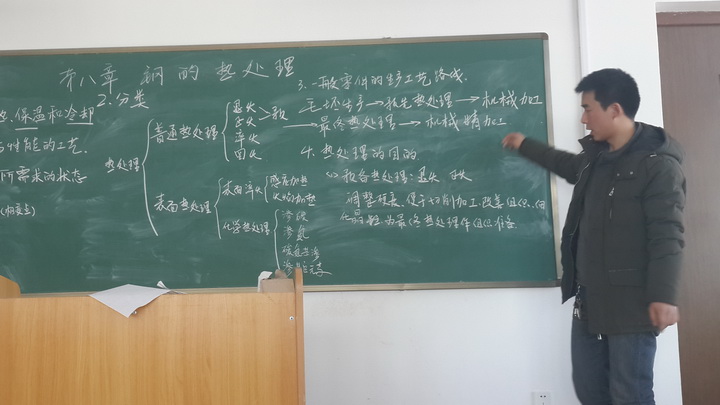 第八章 钢的热处理
保温和冷却
与性能的工艺.
所需求的状态
(相变点)
2.分类
热处理
普通热处理
退火
正火
淬火
回火
表面热处理
表面淬火
感应加热
火焰加热
化学热处理
渗碳
渗氮
碳氮共渗
3.一般零件的生产工艺路线.
毛坯生产→预先热处理→机械加工
→最终热处理→机械精加工
4.热处理的目的
(1)预备热处理:退火 正火
调整硬度,便于切削加工,改善组织,细
化晶粒,为最终热处理作组织准备